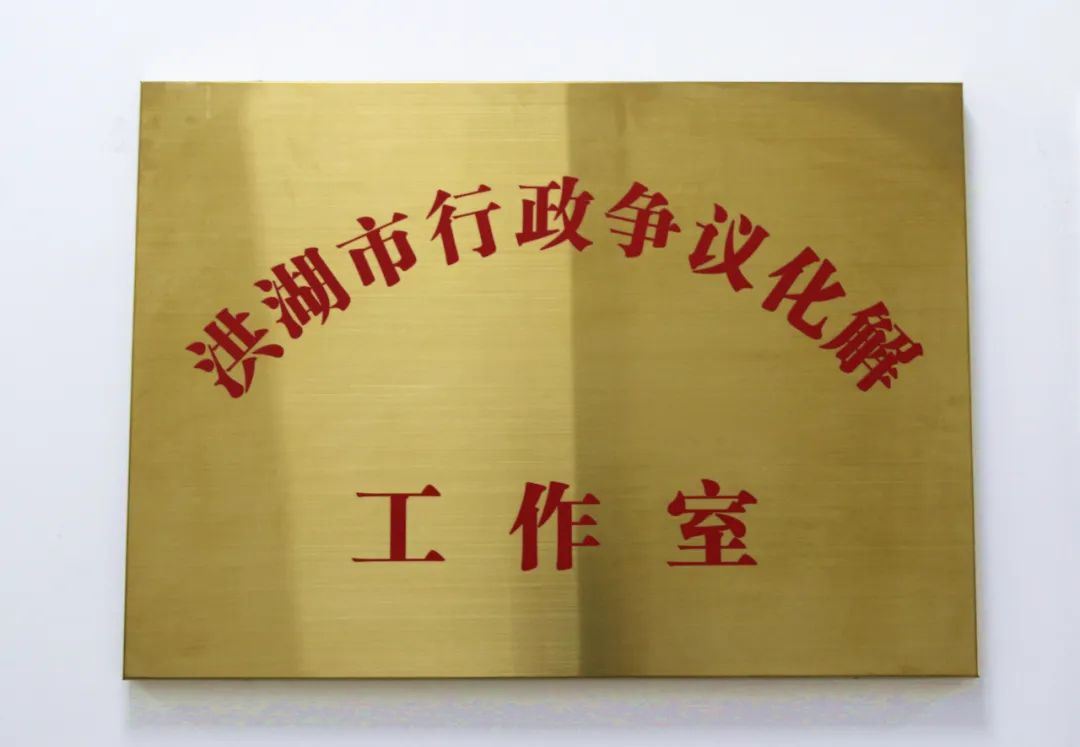 洪湖市行政争议化解
工作室